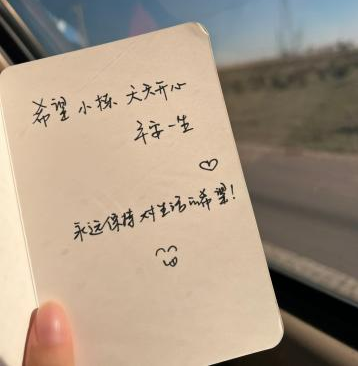 希望小栋天天开心
平安一生
永远保持对生活的希望！